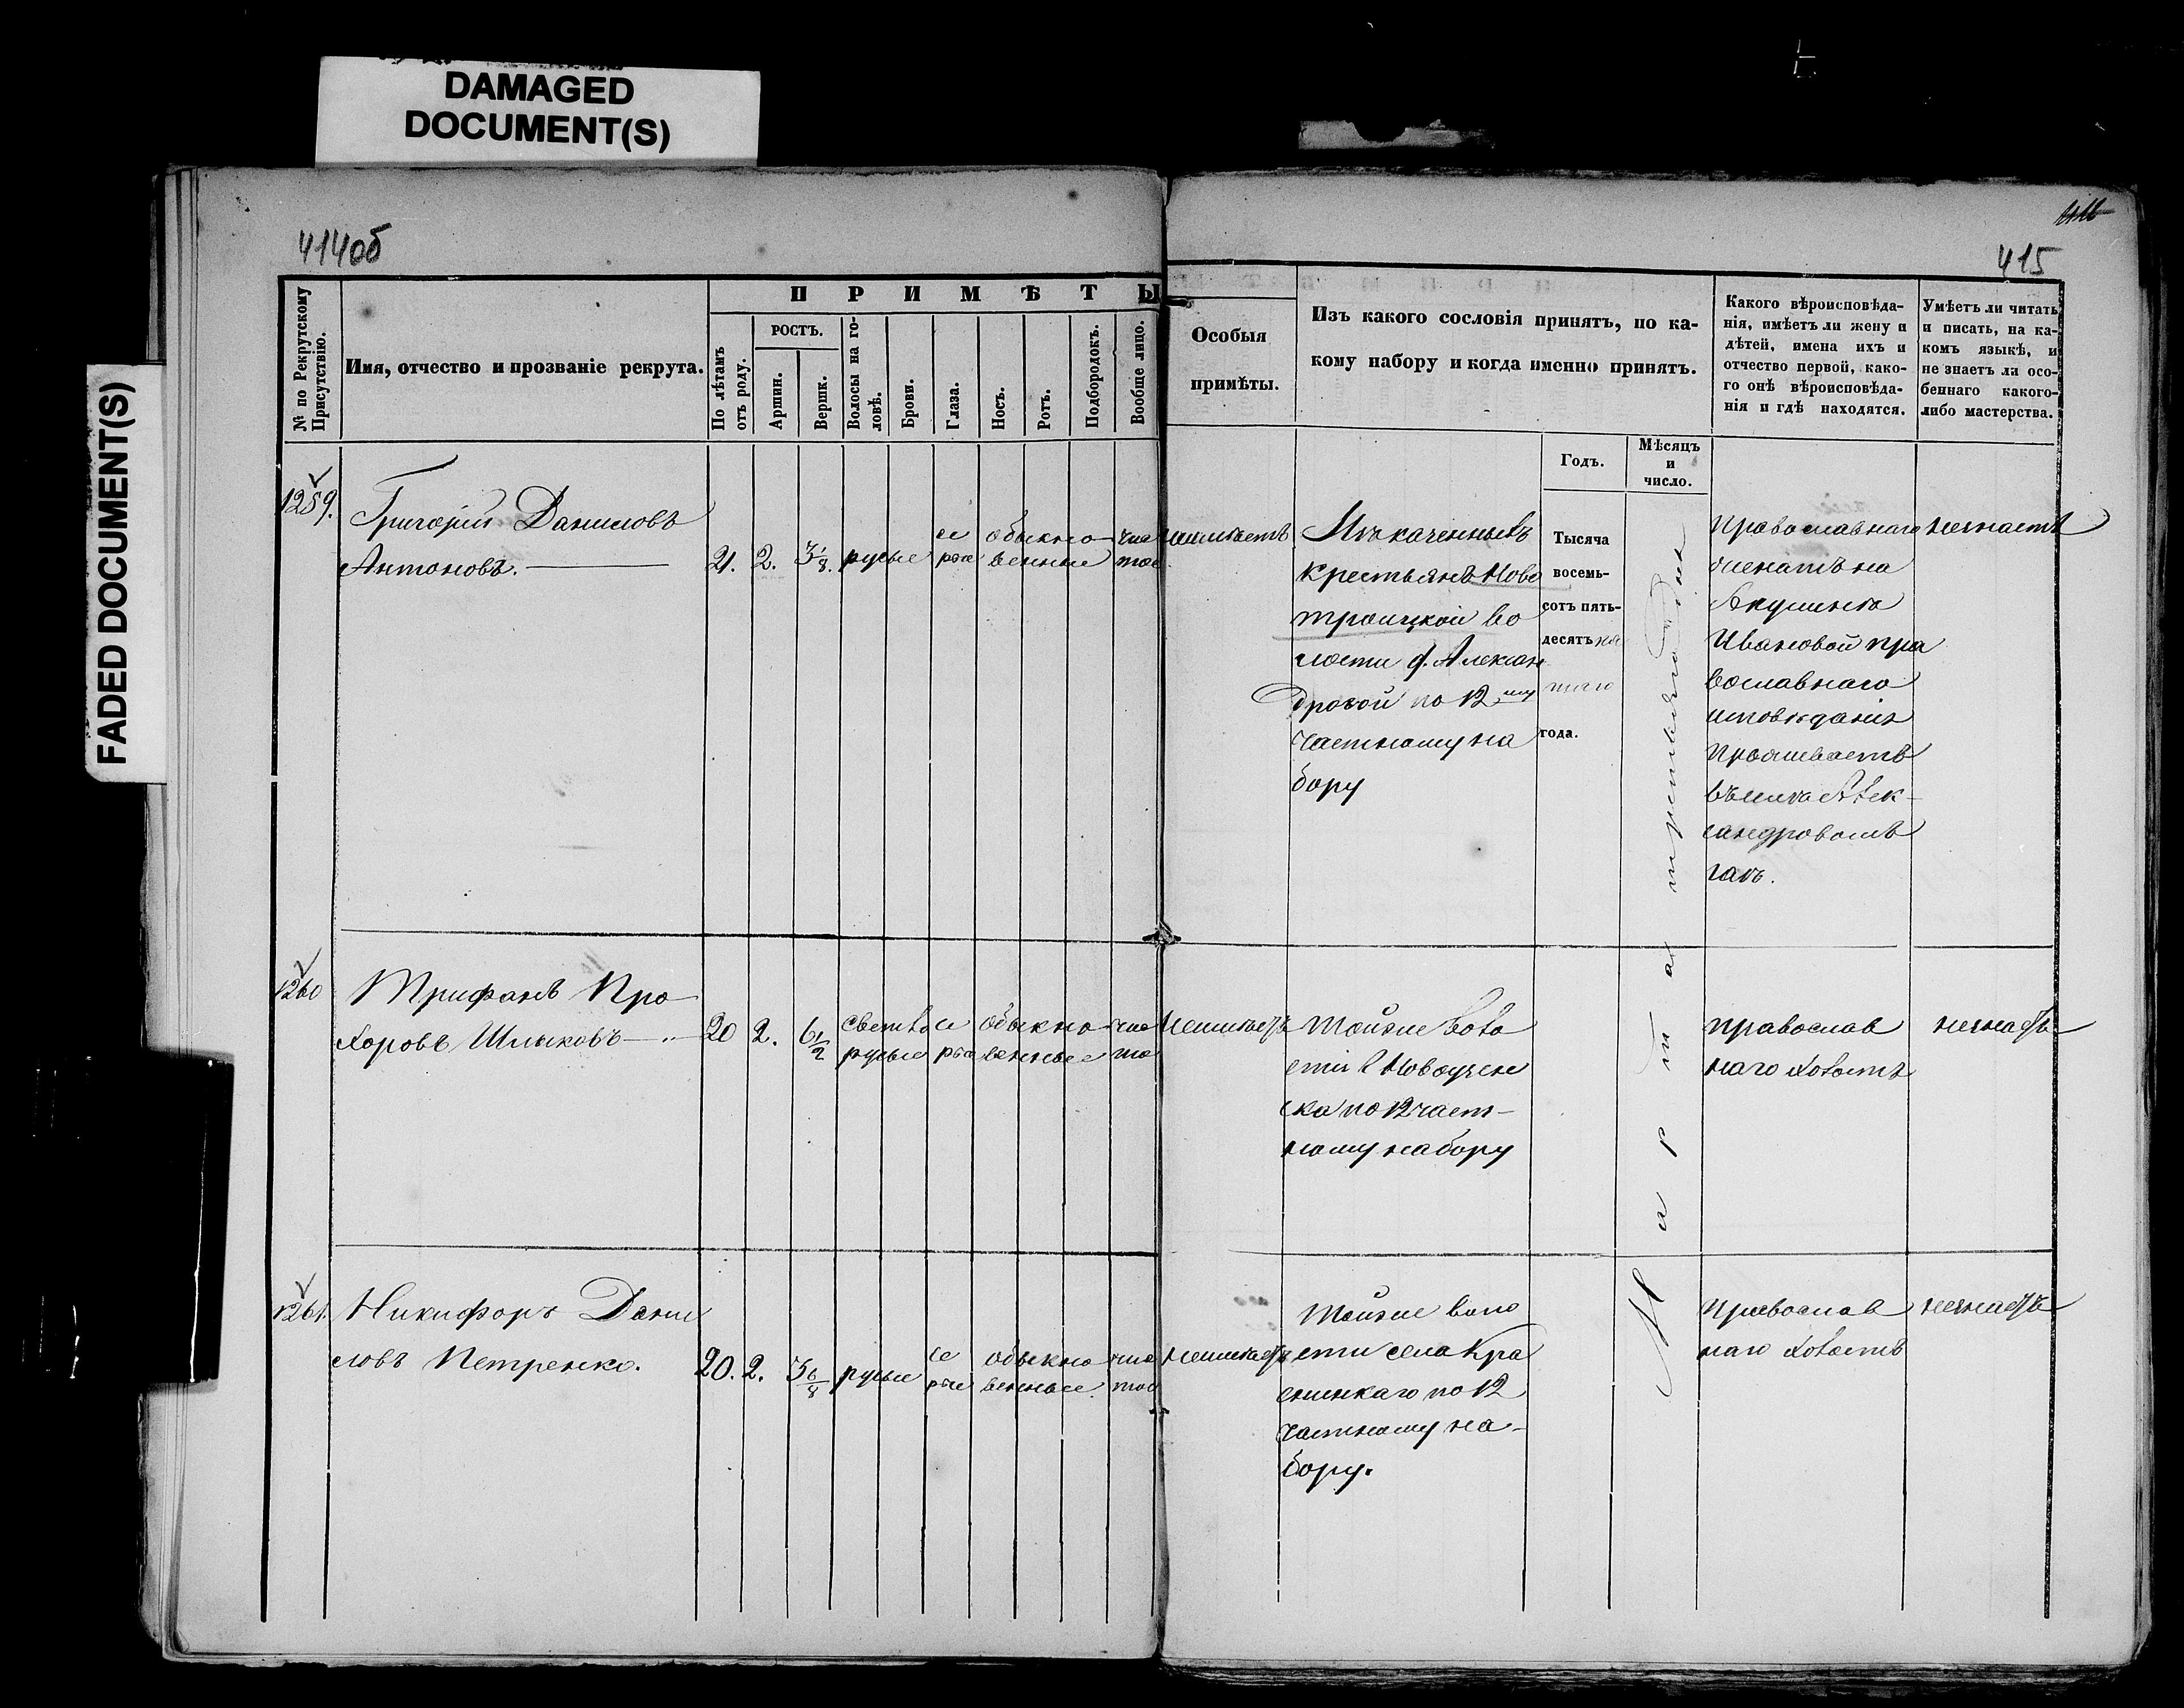 DAMAGED
DOCUMENT(S)
FADED DOCUMENT(S)
414об
415
№ по Рекрутскому
Присутствію.
Имя, отчество и прозваніе рекрута.
ПРИМѢТЫ
По лѣтамъ
отъ роду.
РОСТЪ.
Аршин.
Вершк.
Волосы на го-
ловѣ.
Брови.
Глаза.
Носъ.
Ротъ.
Подбородокъ.
Вообще лицо.
Особыя
примѣты.
Изъ какого сословія принятъ, по ка-
кому набору и когда именно принятъ.
Годъ.
Мѣсяцъ
и
число.
Какого вѣроисповѣда-
нія, имѣетъ ли жену и
дѣтей, имена ихъ и
отчество первой, како-
го онѣ вѣроисповѣда-
нія и гдѣ находятся.
Умѣетъ ли читать
и писать, на ка-
комъ языкѣ, и
не знаетъ ли осо-
беннаго какого-
либо мастерства.
1259.
Григорій Даниловъ
Антоновъ.
21. 2. 3 1/8. русые
се
рые
обыкно
венные
чис
тое
неимѣетъ
Изъ казенныхъ
крестьянъ Ново
троицкой во
лости д. Алексан
дровой по 12му
частному на
бору
Тысяча
восемь-
сотъ пять-
десятъ пя
таго
года.
Марта третьяго дня
Православнаго
женатъ на
Акулинѣ
Ивановой пра
вославнаго
исповѣданія
Проживаетъ
въ Алек-
сандровомъ
незнаетъ
1260
Трифанъ Про
хоровъ Шлыковъ
20 2. 6 1/2
светло
русые
се
рые
обыкно
венные
чис
то
неимѣетъ
Тойже воло
сти
по 12 част-
ному набору
православ
наго холостъ
незнаетъ
1261.
Никифоръ Дани
ловъ Петренко.
20. 2. 3 6/8 русые
се
рые
обыкно
венные.
чис
тое
неимѣетъ
Тойже воло
сти села Кра
по 12
частному на-
бору.
Православ
наго холостъ
незнаетъ